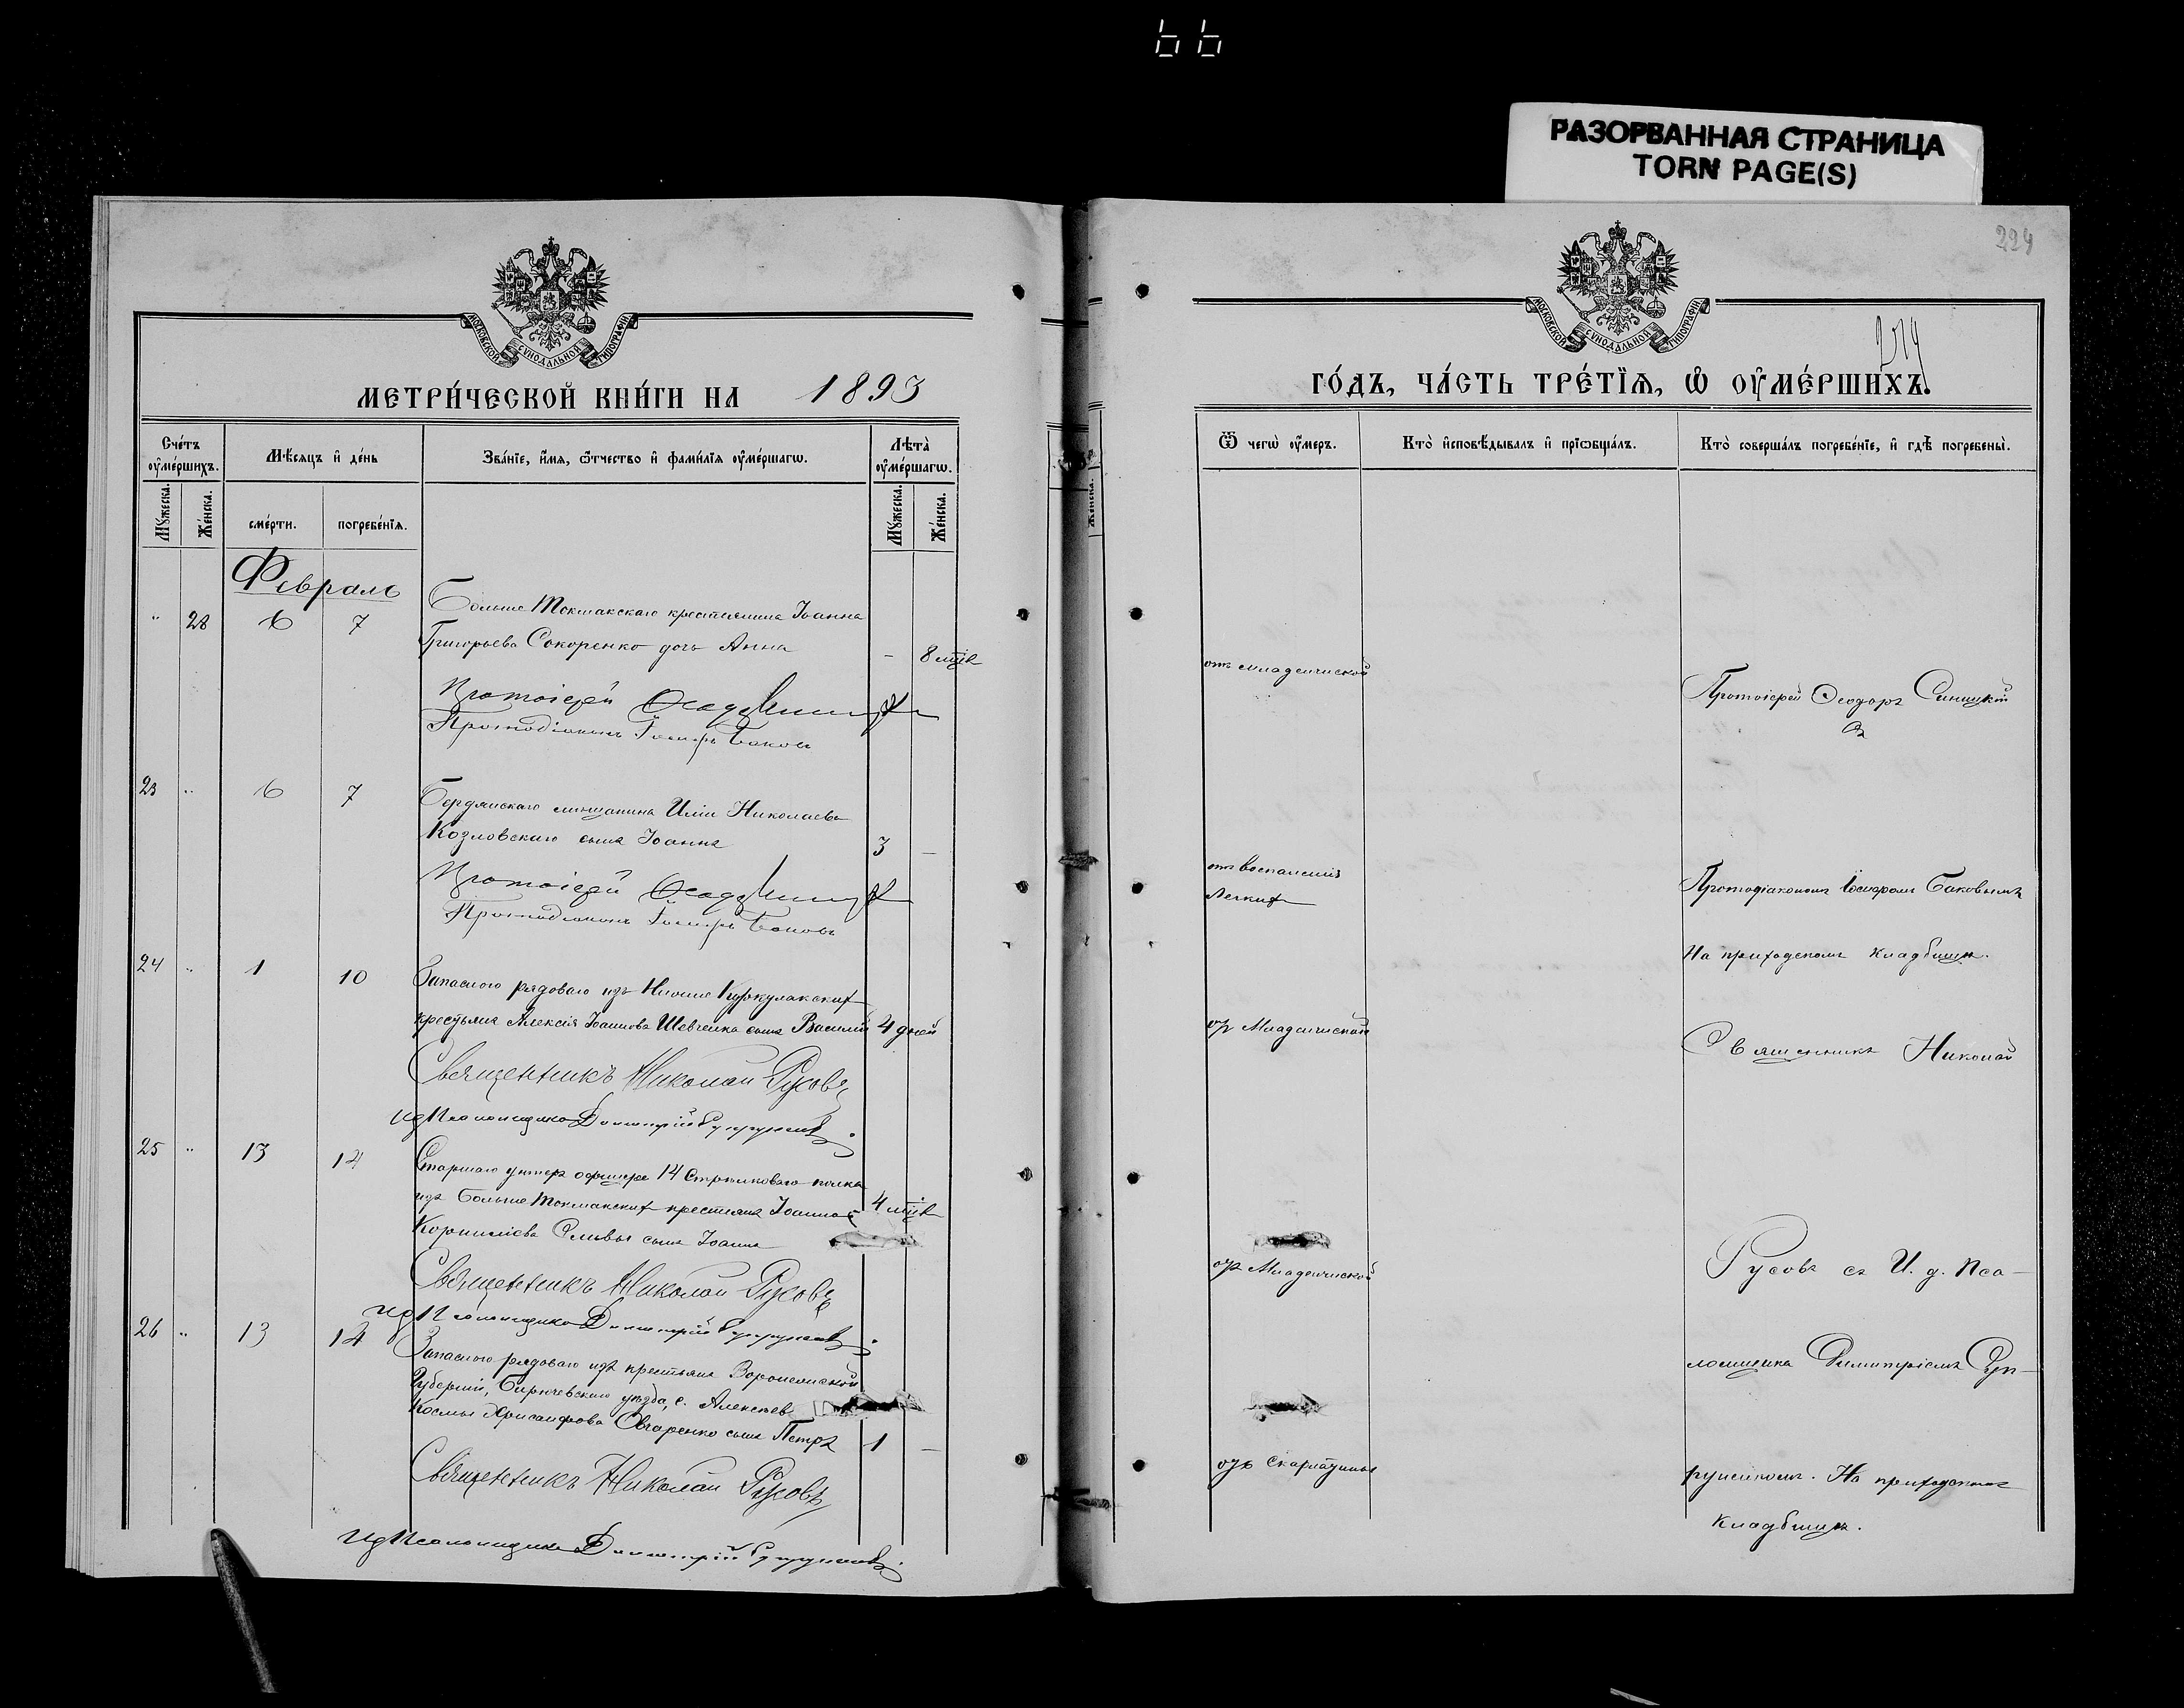 66
РАЗОРВАННАЯ СТРАНИЦА
TORN PAGE(S)
224
МОСКОВСКОЙ СѴНОДАЛЬНОЙ ТИПОГРАФІИ
МЕТРИ́ЧЕСКОЙ КНИ́ГИ НА 1893
Сче́тъ ᲂу҆ме́ршихъ.
Мѣ́сяцъ и҆ де́нь
Зва́нїе, и҆́мя, ѻ҆́тчество и҆ фами́лїя ᲂу҆ме́ршагѡ.
Лѣта̀ ᲂу҆ме́ршагѡ.
Мꙋ́жеска.
Же́нска.
сме́рти.
погребе́нїя.
Мꙋ́жеска.
Же́нска.
Февраль
" 28 6 7 Больше Токмакскаго крестьянина Іоанна
Григорьева Сокоренко дочь Анна - 8 мцѣ
Протоіерей
Протодіаконъ Іосифъ Баковъ
23 " 6 7 Бердянскаго мѣщанина Иліи Николаева
Козловскаго сынъ Іоаннъ 3 -
Протоіерей
Протодіаконъ Іосифъ Баковъ
24 " 1 10 Запаснаго рядоваго изъ Нижне Куркулакскихъ
крестьянъ Алексія Іоаннова Шевченка сынъ Василій 4 дней
Священникъ Николай Русовъ
ид Псаломщика Димитрій
25 " 13 14 Старшаго унтеръ офицера 14 Стрѣлковаго полка
изъ Больше Токмакскихъ крестьянъ Іоанна 4 мцѣ
Корнилієва сынъ Іоаннъ
Священникъ Николай Русовъ
ид Псаломщика Димитрій
26 " 13 14 Запаснаго рядоваго изъ крестьянъ Воронежской
Губерніи, Бирючевскаго уѣзда, с. Алексѣев
Космы Хрисанфова Овчаренко сынъ Петръ 1 -
Священникъ Николай Русовъ
ид Псаломщика Димитрій
МОСКОВСКОЙ СѴНОДАЛЬНОЙ ТИПОГРАФІИ
ГО́ДЪ, ЧА́СТЬ ТРЕ́ТЇѦ, Ѡ҆ ОУ҆МЕ́РШИХЪ.
Ѿ чегѡ̀ ᲂу҆́меръ.
Кто̀ и҆сповѣ́дывалъ и҆ прїѡбща́лъ.
Кто̀ соверша́лъ погребе́нїе, и҆ гдѣ̀ погребены̀.
отъ младенческой
Протоіерей Ѳеодоръ Синицкій
съ
отъ воспаленія
легкихъ
Протодіакономъ Іосифомъ Баковымъ
На приходскомъ кладбищѣ.
отъ Младенческой
Священникъ Николай
отъ Младенческой
Русовъ съ И. д. Пса-
ломщика Димитріемъ
отъ скарлатины
На приходскомъ
кладбищѣ.